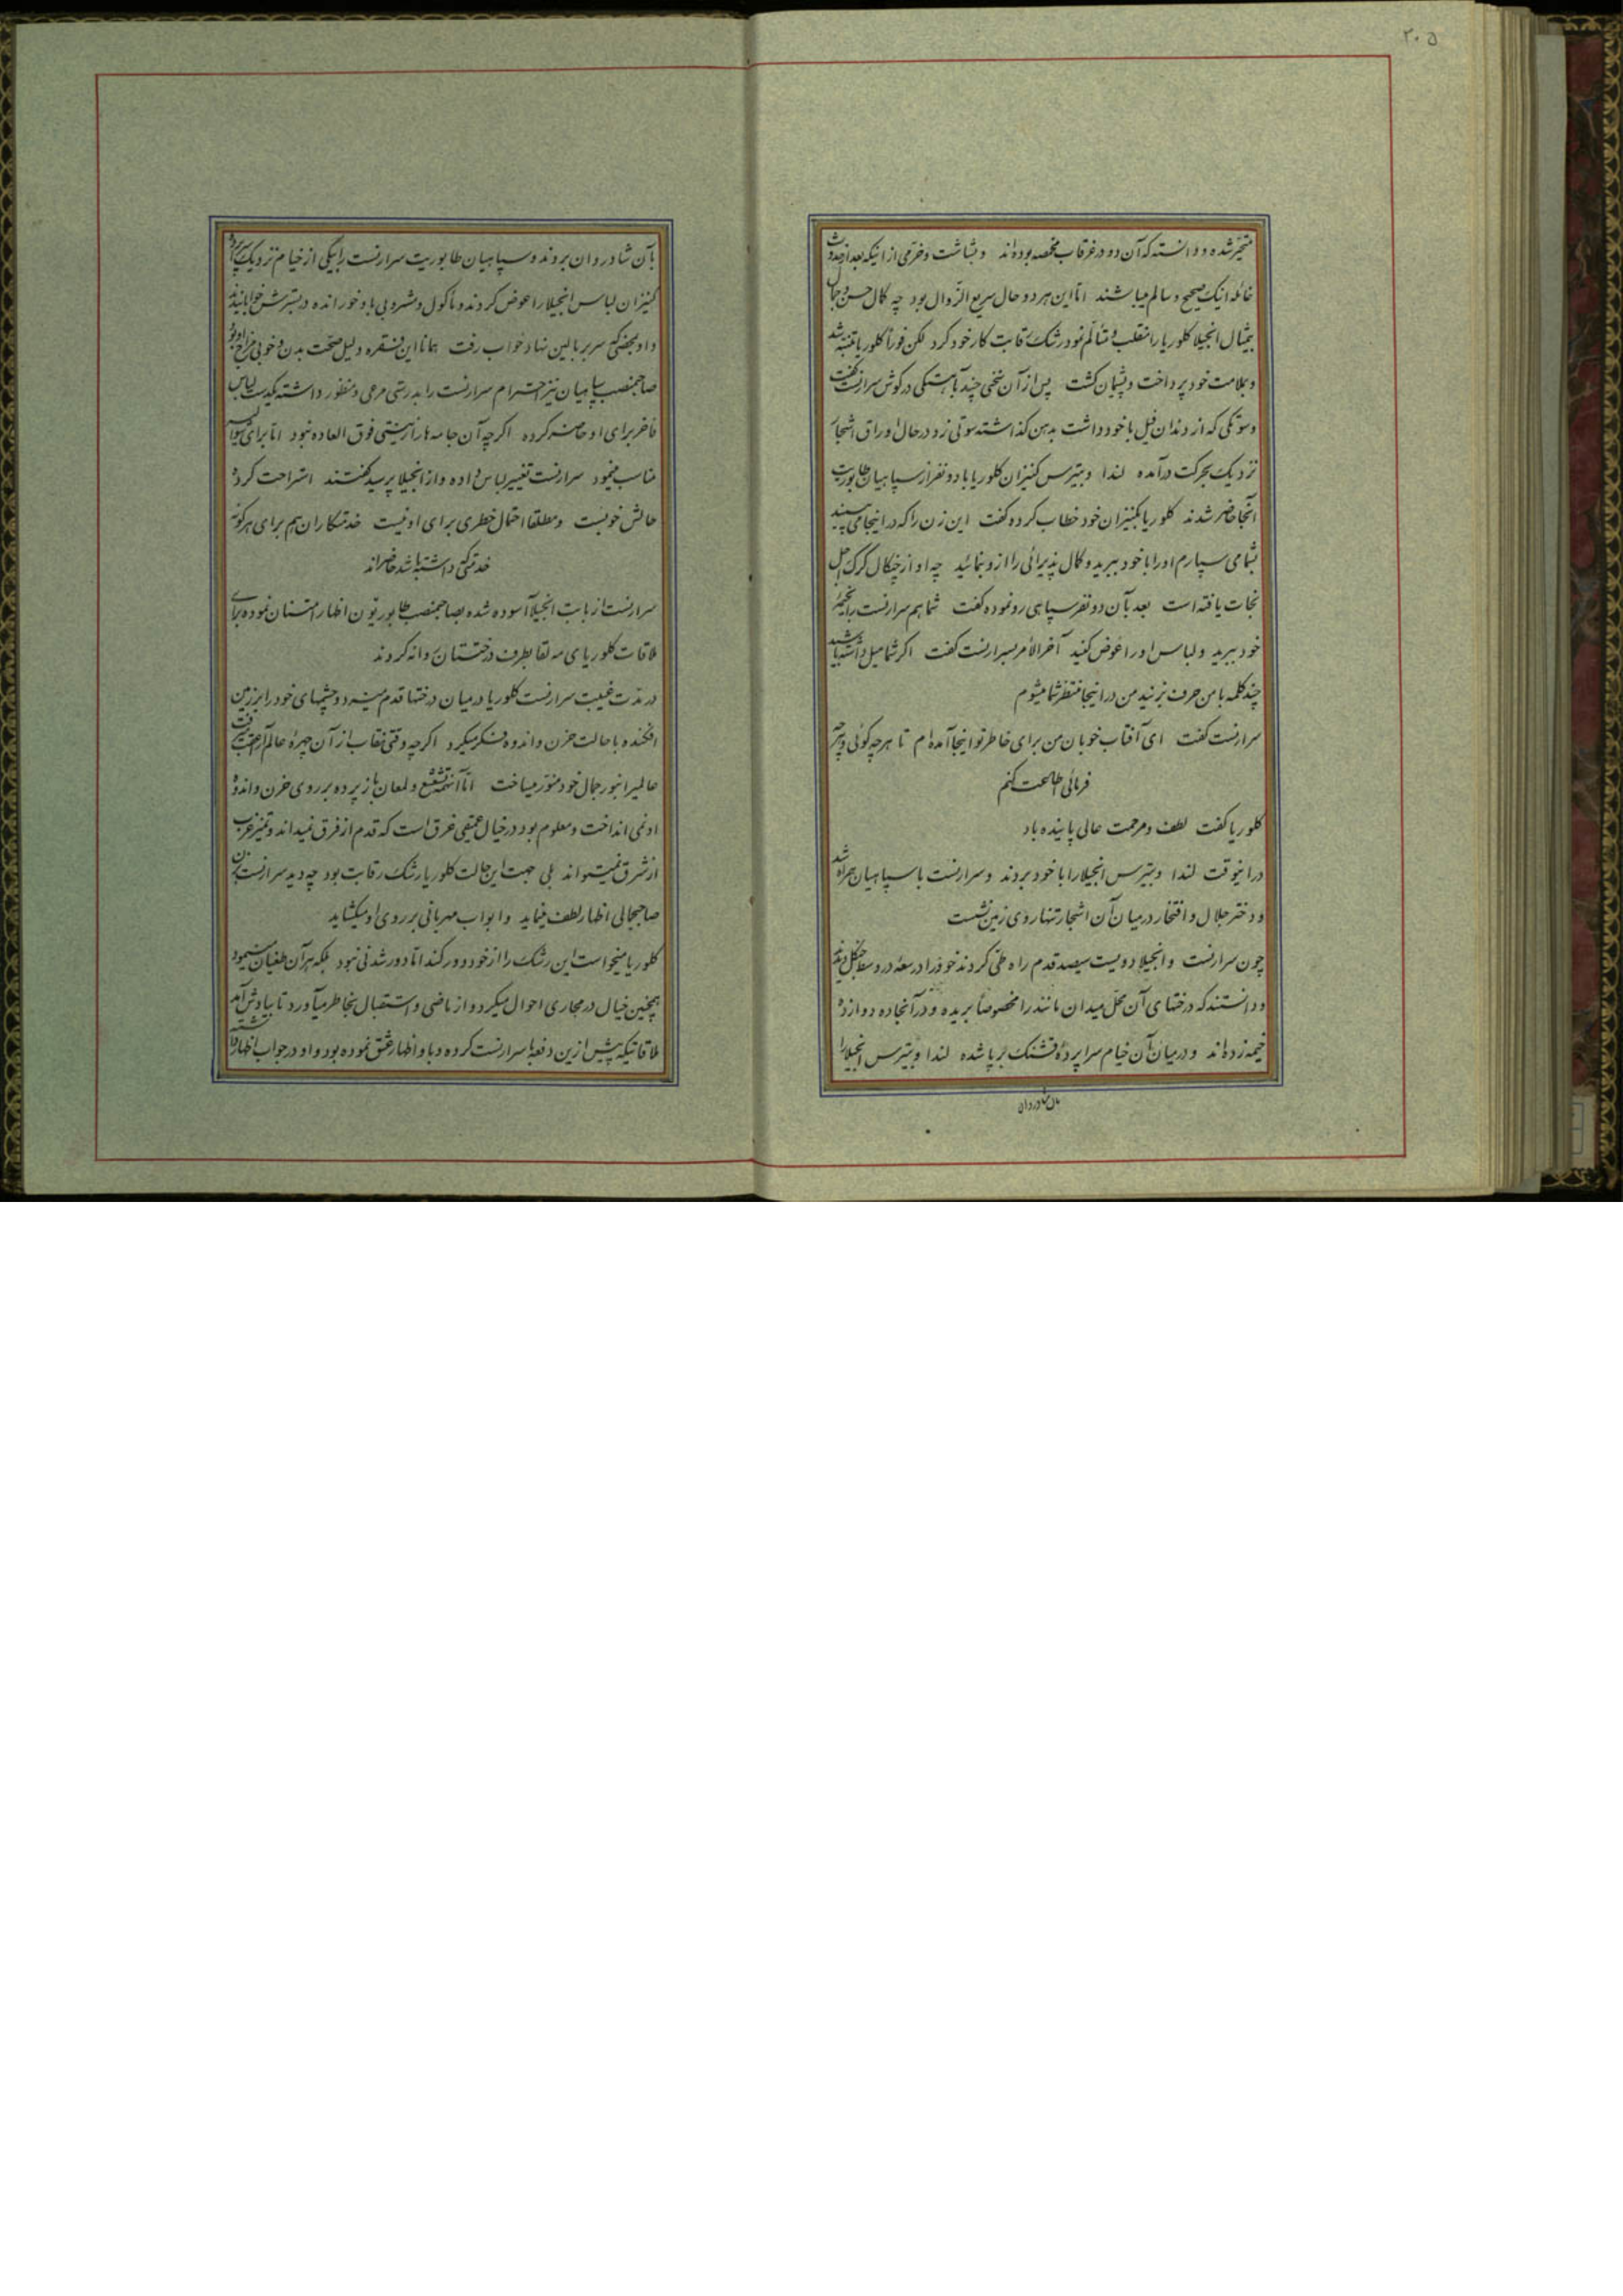 ۲۰۵
متحیر شده و دانسته که آن دو در غرقاب مخمصه بوده‌اند و بشاشت و خرمی از اینکه بعد از حدوث
غائله اینک صحیح و سالم میباشند امّا این هر دو حال سریع الزّوال بود چه کمال حسن و جمال
بیمثال انجیلا کلوریا را منقلب و متألّم نمود رشک رقابت کار خود کرد لکن فوراً کلوریا متنبّه شد
و بملامت خود پرداخت و پشیمان گشت پس از آن سخنی چند بآهستگی در گوش سرارنست گفت
و سوتکی که از دندان فیل با خود داشت بدهن گذاشته سوتی زد در حال اوراق اشجار
نزدیک بحرکت درآمده لندا و بیترس کنیزان کلوریا با دو نفر از سپاهیان طابوریت
آنجا حاضر شدند کلوریا بکنیزان خود خطاب کرده گفت این زن را که در اینجا می‌بینید
بشما می‌سپارم او را با خود ببرید و کمال پذیرائی را از او بنمائید چه او از چنگال گرگ اجل
نجات یافته است بعد بآن دو نفر سپاهی رو نموده گفت شما هم سرارنست را بخیمهٔ
خود ببرید و لباس او را عوض کنید آخرالأمر بسرارنست گفت اگر شما میل داشته باشید
چند کلمه با من حرف بزنید من در اینجا منتظر شما میشوم
سرارنست گفت ای آفتاب خوبان من برای خاطر تو اینجا آمده‌ام تا هر چه گوئی و هر چه
فرمائی اطاعت کنم
کلوریا گفت لطف و مرحمت عالی پاینده باد
در اینوقت لندا و بیترس انجیلا را با خود بردند و سرارنست با سپاهیان همراه شد
و دختر جلال و افتخار در میان آن اشجار تنها روی زمین نشست
چون سرارنست و انجیلا دویست سیصد قدم راه طی کردند خود را در سعهٔ در وسط جنگل دیدند
و دانستند که درختهای آن محل میدان مانند را مخصوصاً بریده و در آنجا ده دوازده
خیمه زده‌اند و در میان آن خیام سراپردهٔ قشنگ برپا شده لندا و بیترس انجیلا را
بآن شادروان
بآن شادروان بردند و سپاهیان طابوریت سرارنست را بیکی از خیام نزدیک سراپرده
کنیزان لباس انجیلا را عوض کردند و ماکول و مشروبی باو خورانده در بسترش خوابانیدند
و او بمحضی که سر ببالین نهاد خواب رفت همانا این فقره دلیل صحّت بدن و خوبی مزاج او بود
صاحبمنصب سپاهیان نیز احترام سرارنست را بدرستی مرعی و منظور داشته یکدست لباس
فاخر برای او حاضر کرده اگرچه آن جامه‌ها را زینتی فوق العاده نبود امّا برای
مناسب مینمود سرارنست تغییر لباس داده و از انجیلا پرسید گفتند استراحت کرده
حالش خوبست و مطلقا احتمال خطری برای او نیست خدمتکاران هم برای هرگونه
خدمتی که داشته باشد حاضراند
سرارنست از بابت انجیلا آسوده شده بصاحبمنصب طابوریتون اظهار امتنان نموده برای
ملاقات کلوریای مه لقا بطرف درختستان روانه گردید
در مدّت غیبت سرارنست کلوریا در میان درختها قدم میزد و چشمهای خود را بر زمین
افکنده با حالت حزن و اندوه فکر میکرد اگرچه وقتی نقاب از آن چهرهٔ عالم‌آرا
عالمیرا بنور جمال خود منوّر میساخت امّا آنهمه تشعشع و لمعان باز پرده بر روی حزن و اندوه
او نمی‌انداخت و معلوم بود در خیال عمیقی غرق است که قدم از فرق نمیداند و تمیز غرب
از شرق نمیتواند بلی جهت این حالت کلوریا رشک رقابت بود چه دید سرارنست بزن
صاحبجمالی اظهار لطف مینماید و ابواب مهربانی بر روی او میگشاید
کلوریا میخواست این رشک را از خود دور کند امّا دور شدنی نبود بلکه هر آن طغیان مینمود
همچنین خیال در مجاری احوال میکرد و از ماضی و استقبال بخاطر میآورد تا بیادش آمد
ملاقاتیکه پیش ازین دفعها سرارنست کرده و باو اظهار عشق نموده بود و او در جواب اظهار